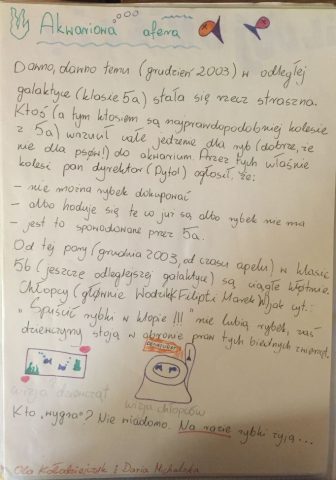 Akwariowa afera
Dawno, dawno temu (grudzień 2003) w odległej
galaktyce (klasie 5a) stała się rzecz straszna.
Ktoś (a tym ktosiem są najprawdopodobniej kolesie
z 5a) wrzucił całe jedzenie dla ryb (dobrze, że
nie dla psów!) do akwarium. Przez tych właśnie
kolesi pan dyrektor (Pytol) ogłosił, że:
- nie można rybek dokupować
- albo hoduje się te co już są albo rybek nie ma
- jest to spowodowane przez 5a.
Od tej pory (grudnia 2003, od czasu apelu) w klasie
5b (jeszcze odleglejszej galaktyce) są ciągle kłótnie.
Chłopcy (głównie Filip i Marek) cyt.:
"Spuścić rybki w klopie!!!" nie lubią rybek, zaś
dziewczyny stoją w obronie praw tych biednych zwierząt.
wizja dziewcząt
wizja chłopców
Kto "wygra"? Nie wiadomo. Na razie rybki żyją...
Ola Kołodziejczyk i Daria Michalska